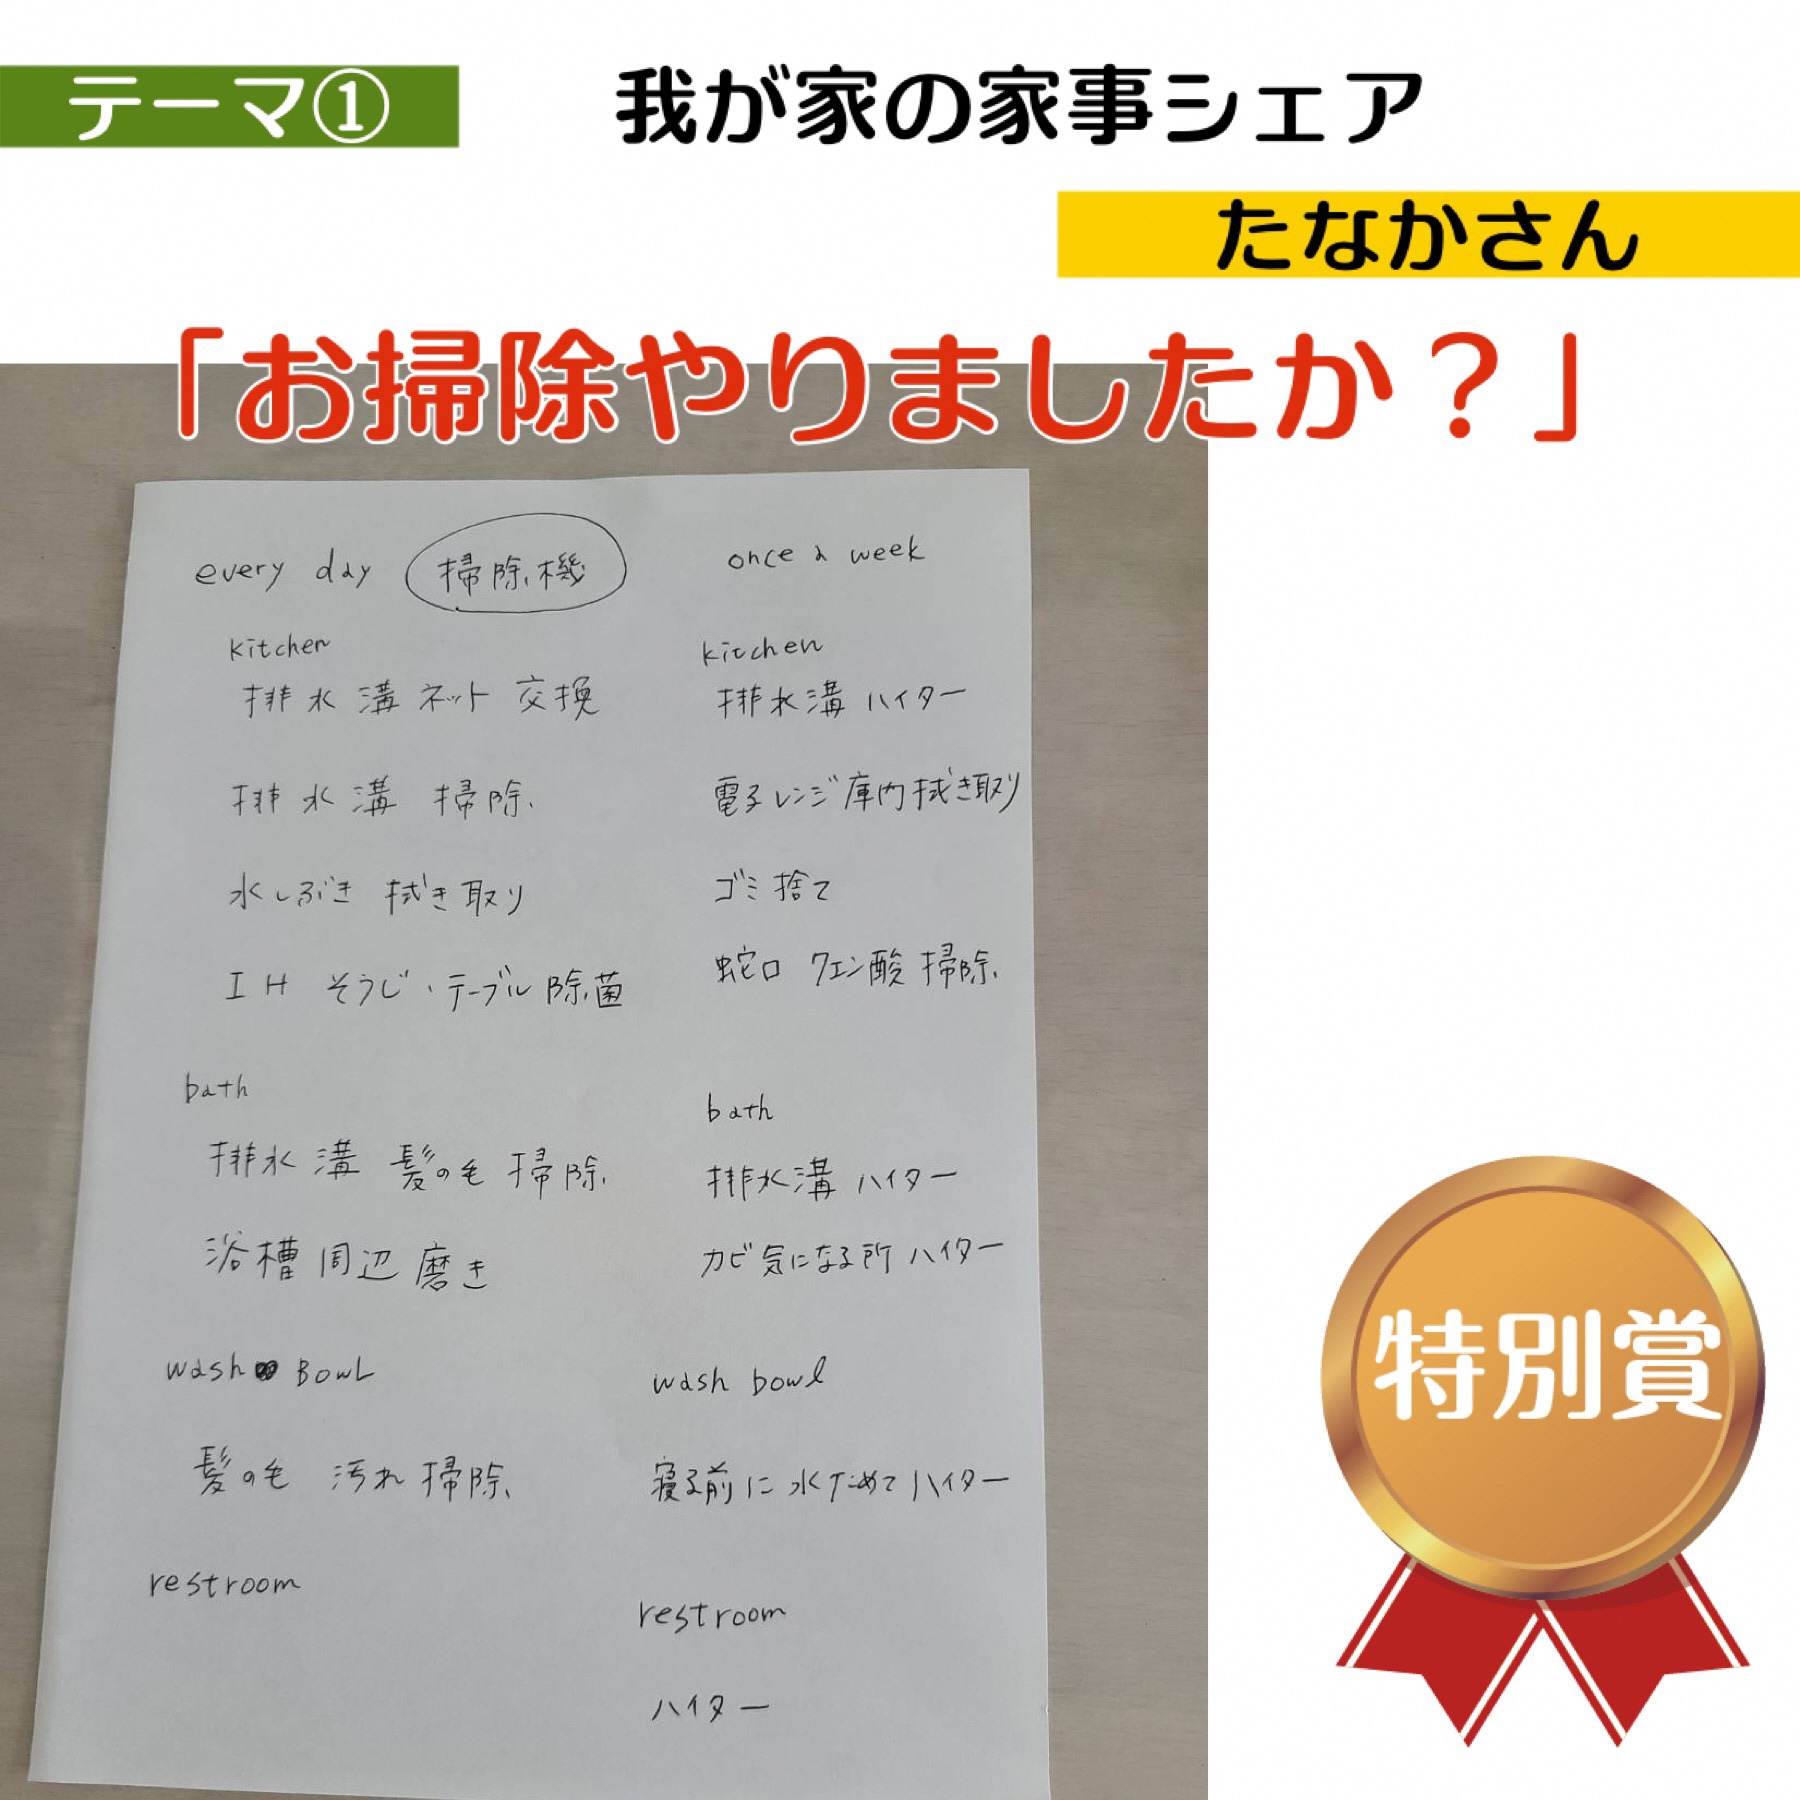 テーマ①
我が家の家事シェア
たなかさん
「お掃除やりましたか？」
every day 掃除機
kitchen
排水溝 ネット 交換
排水溝 掃除
水しぶき 拭き取り
IH そうじ・テーブル除菌
bath
排水溝 髪の毛 掃除
浴槽周辺磨き
wash BowL
髪の毛 汚れ掃除
restroom
once a week
kitchen
排水溝 ハイター
電子レンジ庫内拭き取り
ゴミ捨て
蛇口 クエン酸掃除
bath
排水溝 ハイター
カビ気になる所 ハイター
wash bowl
寝る前に水ためてハイター
restroom
ハイター
特別賞